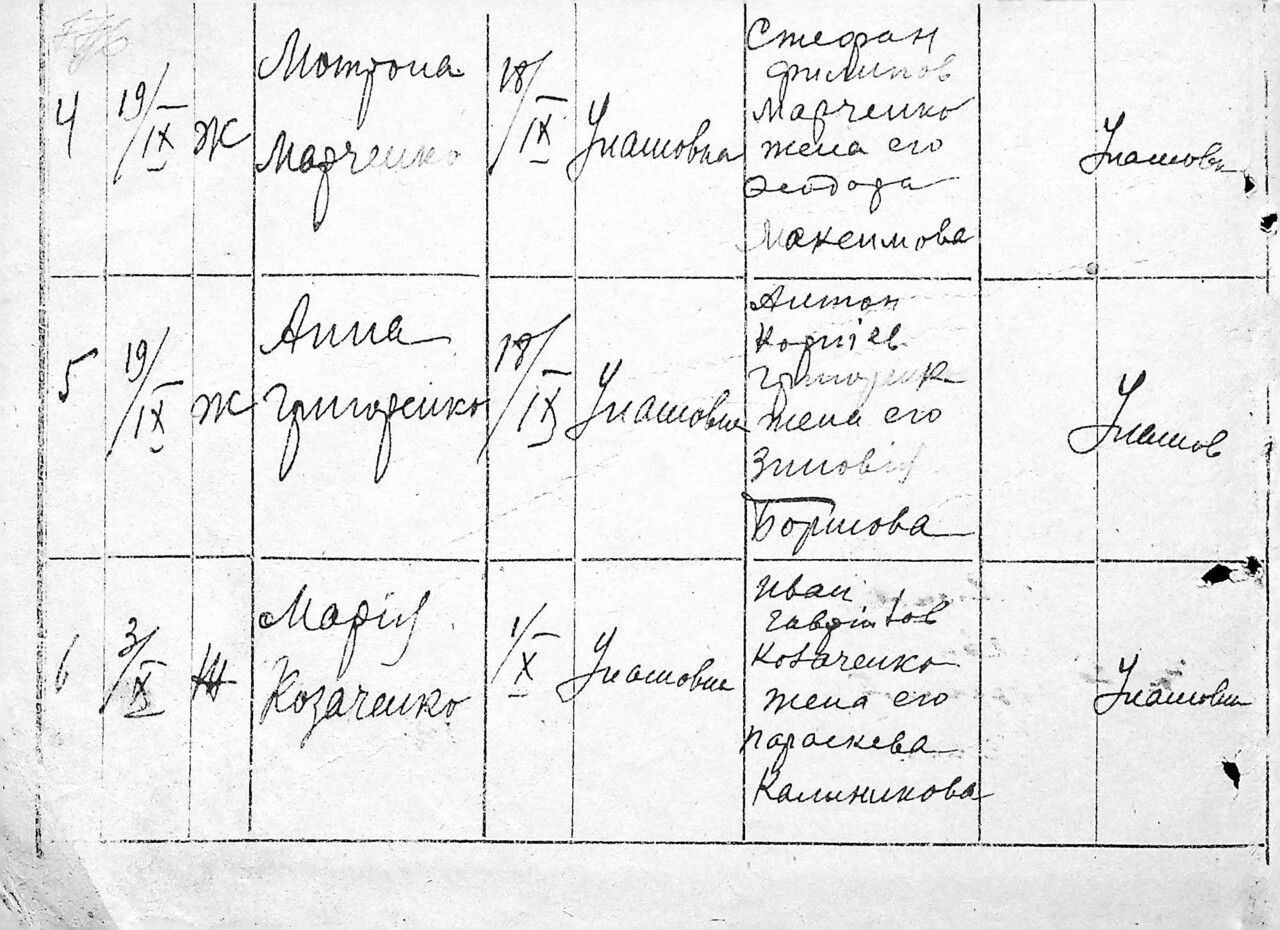 4
19/IX
Ж
Мотрона
Марченко
18/IX
Унашовка
Стефан
Филипов
Марченко
жена его
Феодора
Максимова
Унашовк
5
19/IX
Ж
Анна
Григоренко
18/IX
Унашовка
Антон
Корнієв
Григоренк
жена его
Зиновія
Борисова
Унашов
6
3/X
Ж
Марія
Козаченко
1/X
Унашовка
Иван
Козаченко
жена его
Параскева
Калиникова
Унашовка